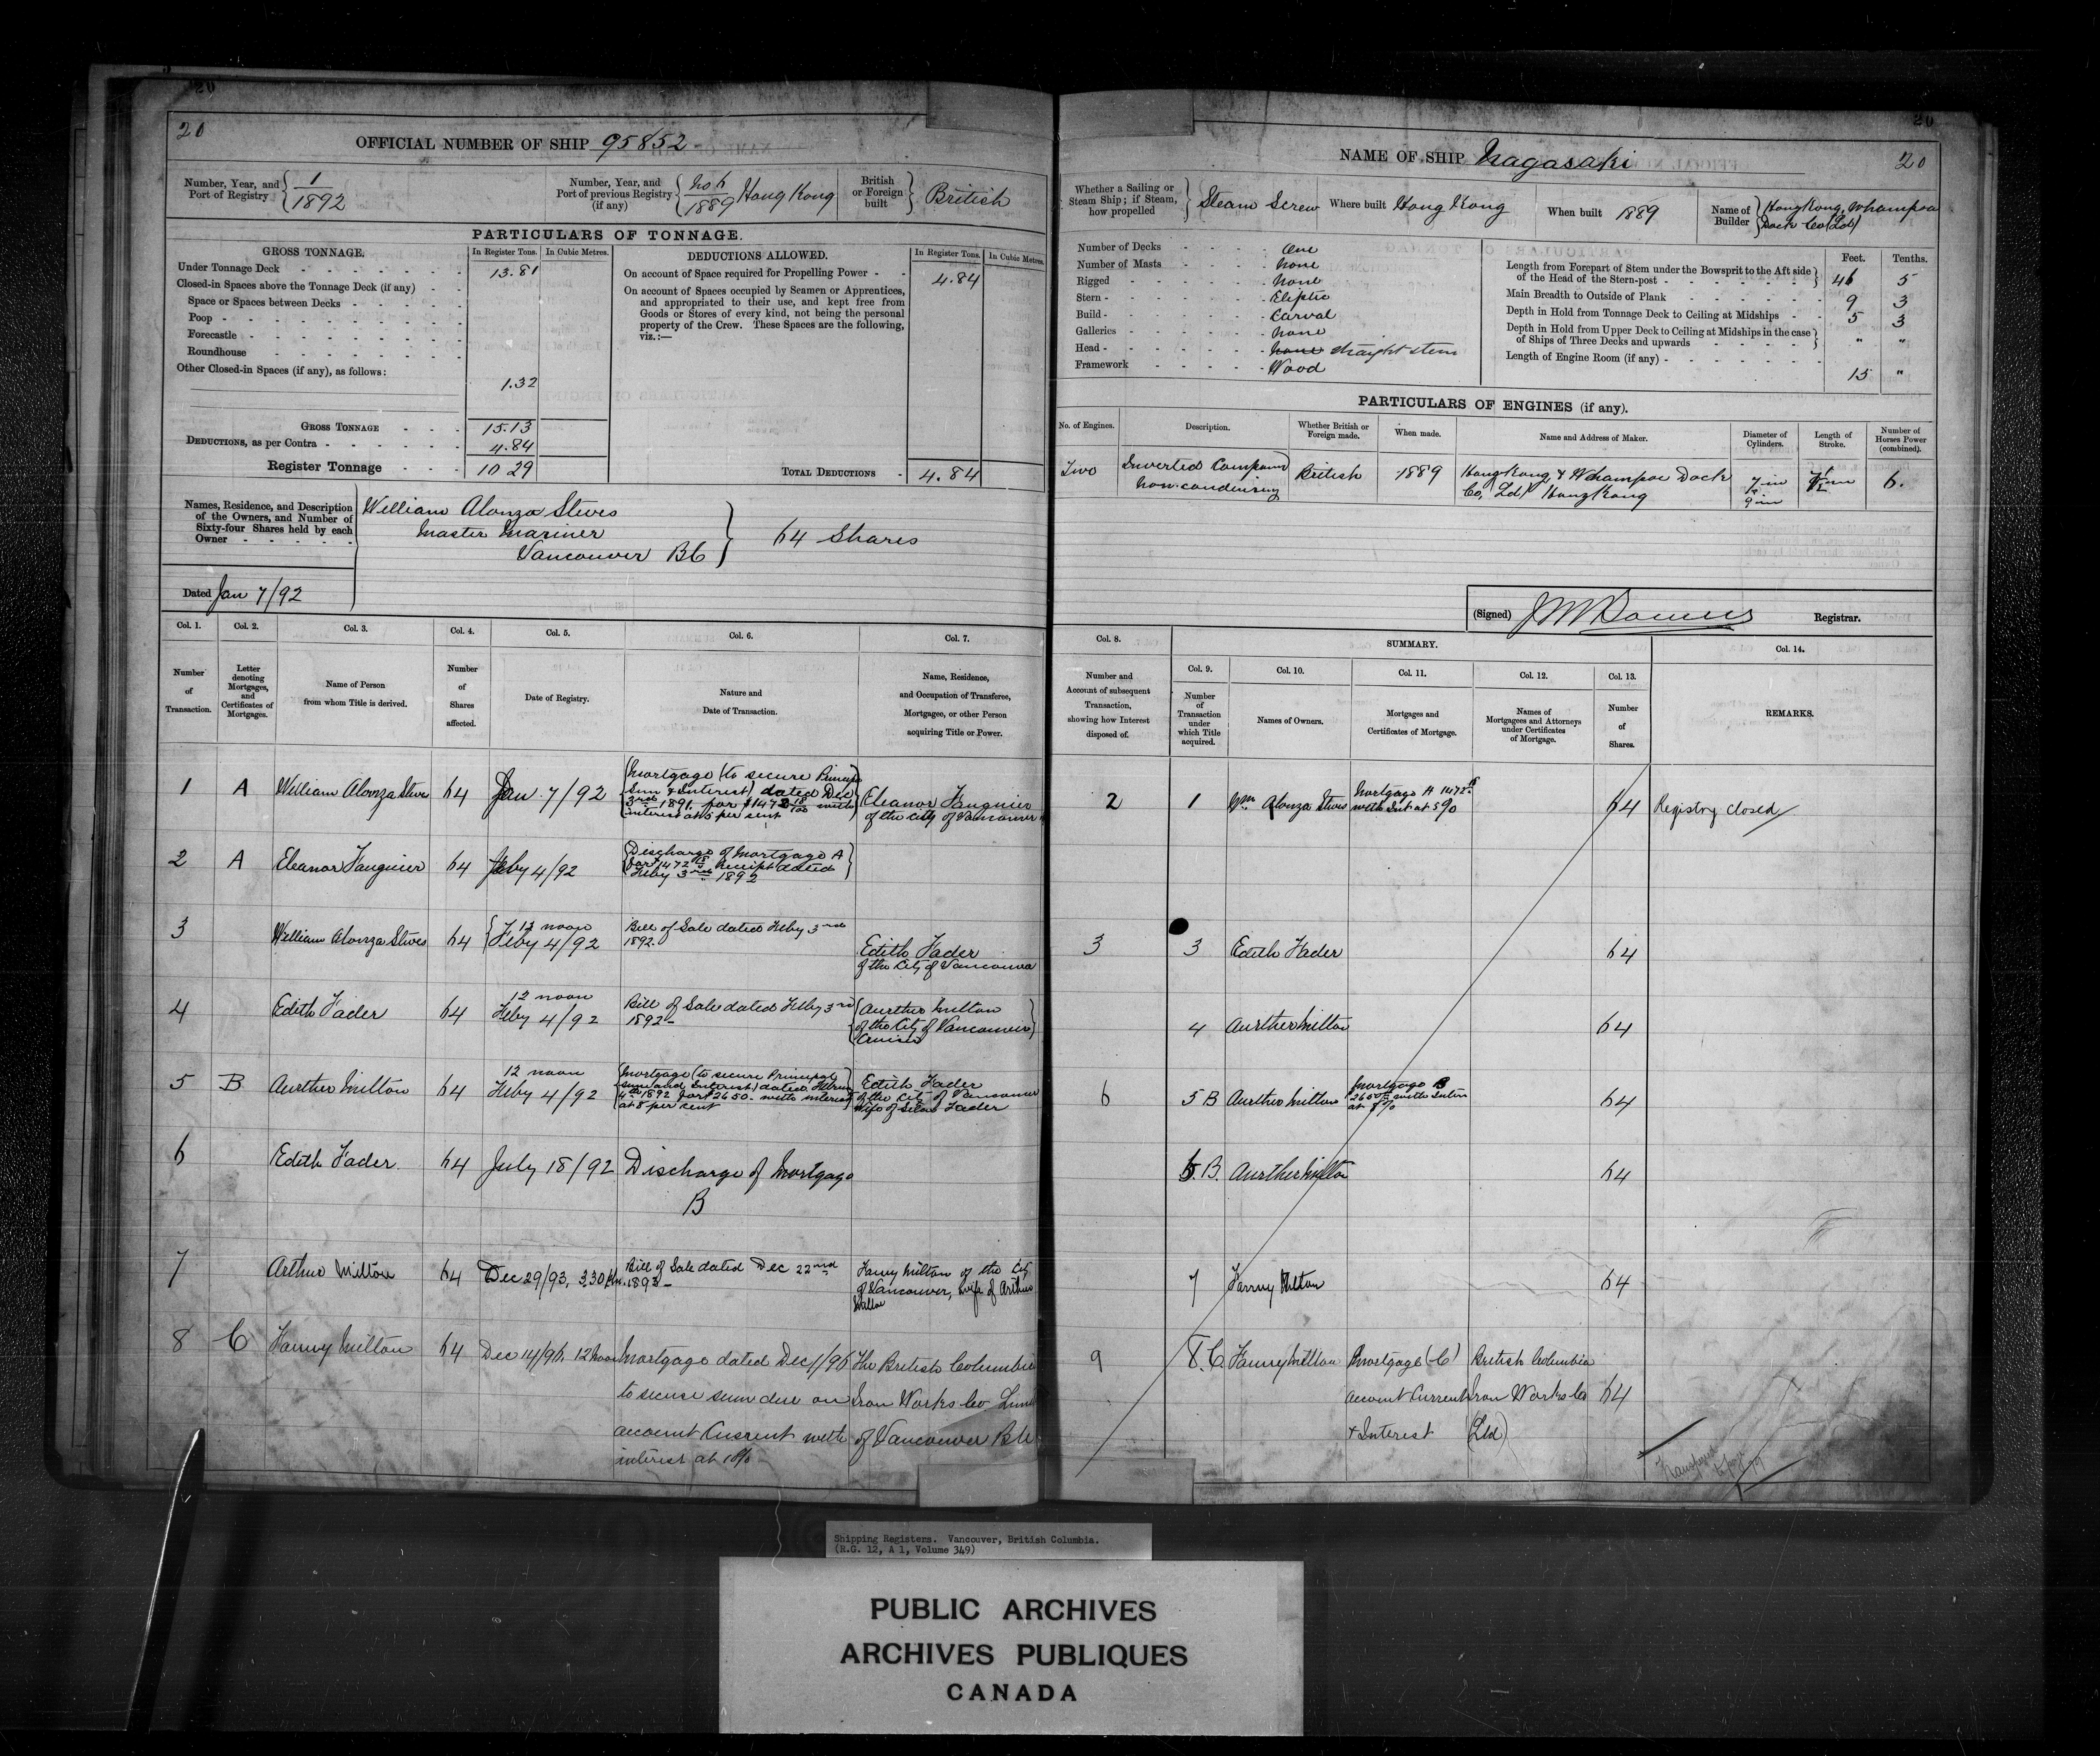 20
OFFICIAL NUMBER OF SHIP 95852
Number, Year, and Port of Registry { 1/1892
Number, Year, and Port of previous Registry (if any) { 1889 Hong Kong
British or Foreign built } British
PARTICULARS OF TONNAGE.
GROSS TONNAGE. In Register Tons. In Cubic Metres.
Under Tonnage Deck 13.81
Closed-in Spaces above the Tonnage Deck (if any)
Space or Spaces between Decks
Poop
Forecastle
Roundhouse
Other Closed-in Spaces (if any), as follows:
1.32
GROSS TONNAGE 15.13
DEDUCTIONS, as per Contra 4.84
Register Tonnage 10 29
DEDUCTIONS ALLOWED. In Register Tons. In Cubic Metres.
On account of Space required for Propelling Power 4.84
On account of Spaces occupied by Seamen or Apprentices,
and appropriated to their use, and kept free from
Goods or Stores of every kind, not being the personal
property of the Crew. These Spaces are the following,
viz.:—
TOTAL DEDUCTIONS 4.84
Names, Residence, and Description
of the Owners, and Number of
Sixty-four Shares held by each
Owner
William Alonza Steves
Master Mariner
Vancouver BC
64 Shares
Dated Jan 7/92
Col. 1. Col. 2. Col. 3. Col. 4. Col. 5. Col. 6. Col. 7.
Number of Transaction.
Letter denoting Mortgages, and Certificates of Mortgages.
Name of Person from whom Title is derived.
Number of Shares affected.
Date of Registry.
Nature and Date of Transaction.
Name, Residence, and Occupation of Transferee, Mortgagee, or other Person acquiring Title or Power.
1 A William Alonza Steves 64 Jan 7/92
Mortgage (to secure Principal
Sum & Interest) dated Dec
3rd 1891. for $1472 18/100 with
interest at 5 per cent
Eleanor Fauquier
of the City of Vancouver
2 A Eleanor Fauquier 64 Feby 4/92
Discharge of Mortgage A
for $1472 18 Receipt dated
Feby 3rd 1892
3 William Alonza Steves 64 12 noon Feby 4/92
Bill of Sale dated Feby 3rd
1892.
Edith Fader
of the City of Vancouver
4 Edith Fader 64 12 noon Feby 4/92
Bill of Sale dated Feby 3rd
1892—
Aurther Milton
of the City of Vancouver
5 B Aurther Milton 64 12 noon Feby 4/92
Mortgage (to secure Principal
sum and Interest) dated
4th 1892 for $2650. with interest
at 8 per cent
Edith Fader
of the City of Vancouver
Wife of Silas Fader
6 Edith Fader 64 July 18/92
Discharge of Mortgage
B
7 Arthur Milton 64 Dec 29/93, 3.30 Pm.
Bill of Sale dated Dec 22nd
1893—
Fanny Milton of the City
of Vancouver, wife of Arthur
Milton
8 C Fanny Milton 64 Dec 14/96. 12 noon
Mortgage dated Dec 1/96
to secure sum due on
account Current with
interest at 10%
The British Columbia
Iron Works Co
of Vancouver BC
20
NAME OF SHIP Nagasaki
20
Whether a Sailing or Steam Ship; if Steam, how propelled } Steam Screw
Where built Hong Kong
When built 1889
Name of Builder { Hong Kong, Whampoa
Dock Co (Ltd)
Number of Decks One
Number of Masts None
Rigged None
Stern Eliptic
Build Carval
Galleries None
Head straight stem
Framework Wood
Feet. Tenths.
Length from Forepart of Stem under the Bowsprit to the Aft side of the Head of the Stern-post 46 5
Main Breadth to Outside of Plank 9 3
Depth in Hold from Tonnage Deck to Ceiling at Midships 5 3
Depth in Hold from Upper Deck to Ceiling at Midships in the case of Ships of Three Decks and upwards " "
Length of Engine Room (if any) 15 "
PARTICULARS OF ENGINES (if any).
No. of Engines. Description. Whether British or Foreign made. When made. Name and Address of Maker. Diameter of Cylinders. Length of Stroke. Number of Horses Power (combined).
Two
Inverted Compound
non-condensing
British 1889
Hong Kong & Whampoa Dock
Co, Ld) Hong Kong
6.
(Signed) Registrar.
Col. 8. SUMMARY. Col. 14.
Col. 9. Col. 10. Col. 11. Col. 12. Col. 13.
Number and Account of subsequent Transaction, showing how Interest disposed of.
Number of Transaction under which Title acquired.
Names of Owners.
Mortgages and Certificates of Mortgage.
Names of Mortgagees and Attorneys under Certificates of Mortgage.
Number of Shares.
REMARKS.
2 1 Wm Alonza Steves
Mortgage A 1472 18
with Int at 5%
64 Registry closed
3 3 Edith Fader 64
4 Aurther Milton 64
6 5 B Aurther Milton
Mortgage B
2650 with
at 8%
64
B. Aurther Milton 64
7 Fanny Milton 64
9 8. C. Fanny Milton
Mortgage (C)
account Current
& Interest
British Columbia
Iron Works Co
(Ltd)
64
Shipping Registers. Vancouver, British Columbia.
(R.G. 12, A 1, Volume 349)
PUBLIC ARCHIVES
ARCHIVES PUBLIQUES
CANADA